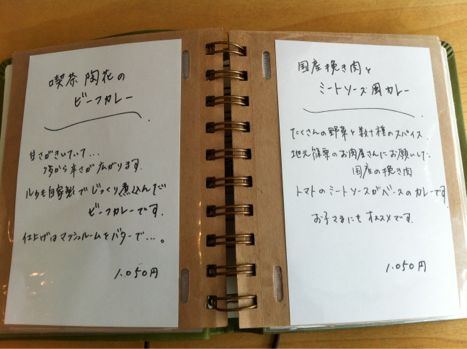 喫茶 陶花の
ビーフカレー
甘さがきいたて...
後から辛さが広がります。
ルウも自家製でじっくり煮込んだ
ビーフカレーです。
仕上げはマッシュルームをバターで...。
1.050円
国産挽き肉と
ミートソース風カレー
たくさんの野菜と数十種のスパイス。
地元篠栗のお肉屋さんにお願いした
国産の挽き肉
トマトのミートソースがベースのカレーです
お子さまにもオススメです。
1.050円